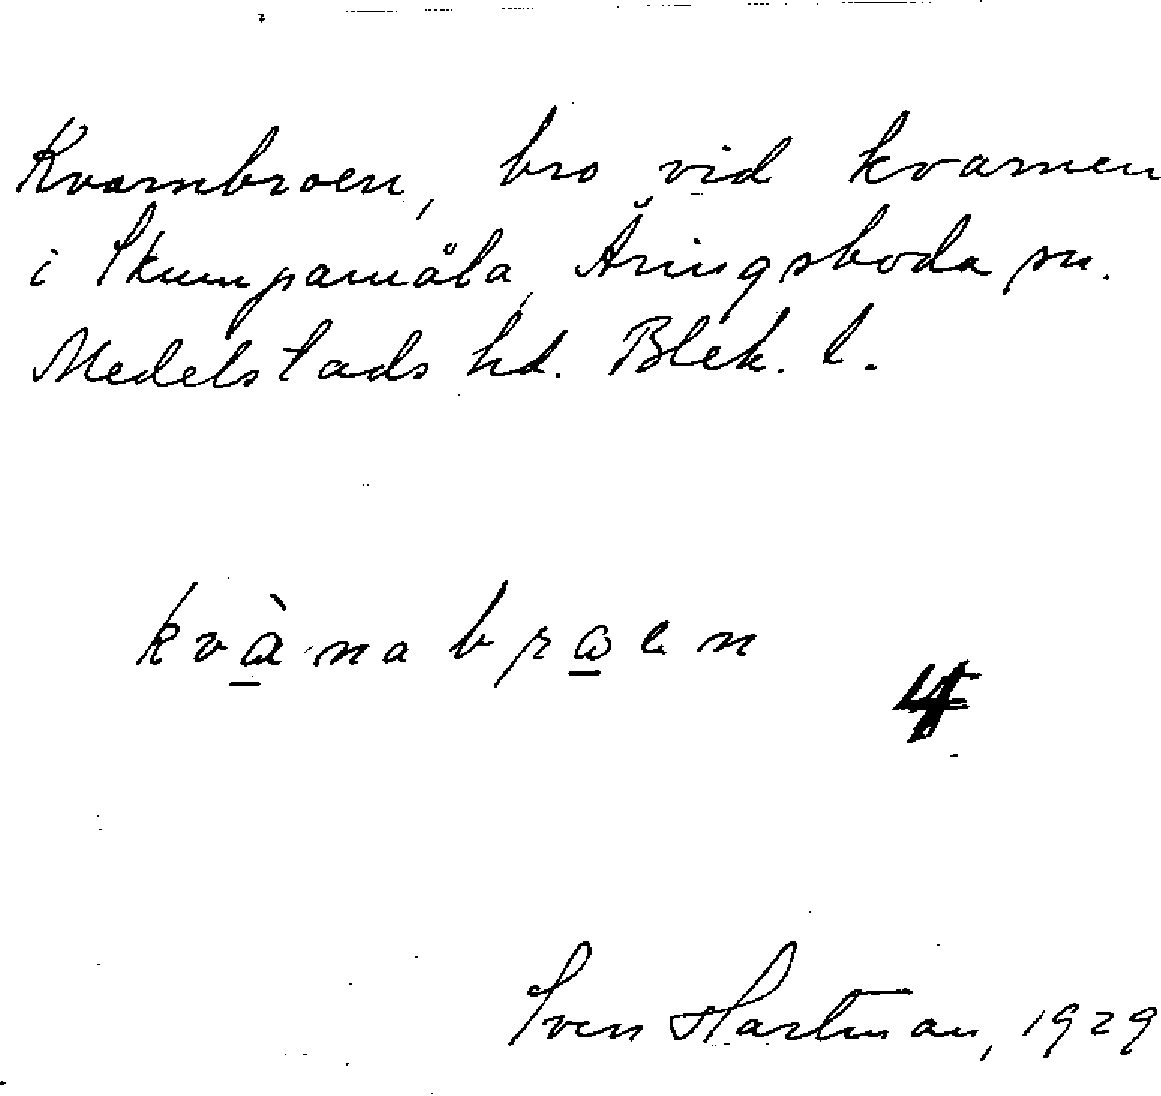 Kvarnbroen, bro vid kvarnen
i Skumpamåla, Åringsboda sn.
Medelstads hd. Blek. l.
kvànabroen
4
Sven Hartman, 1929